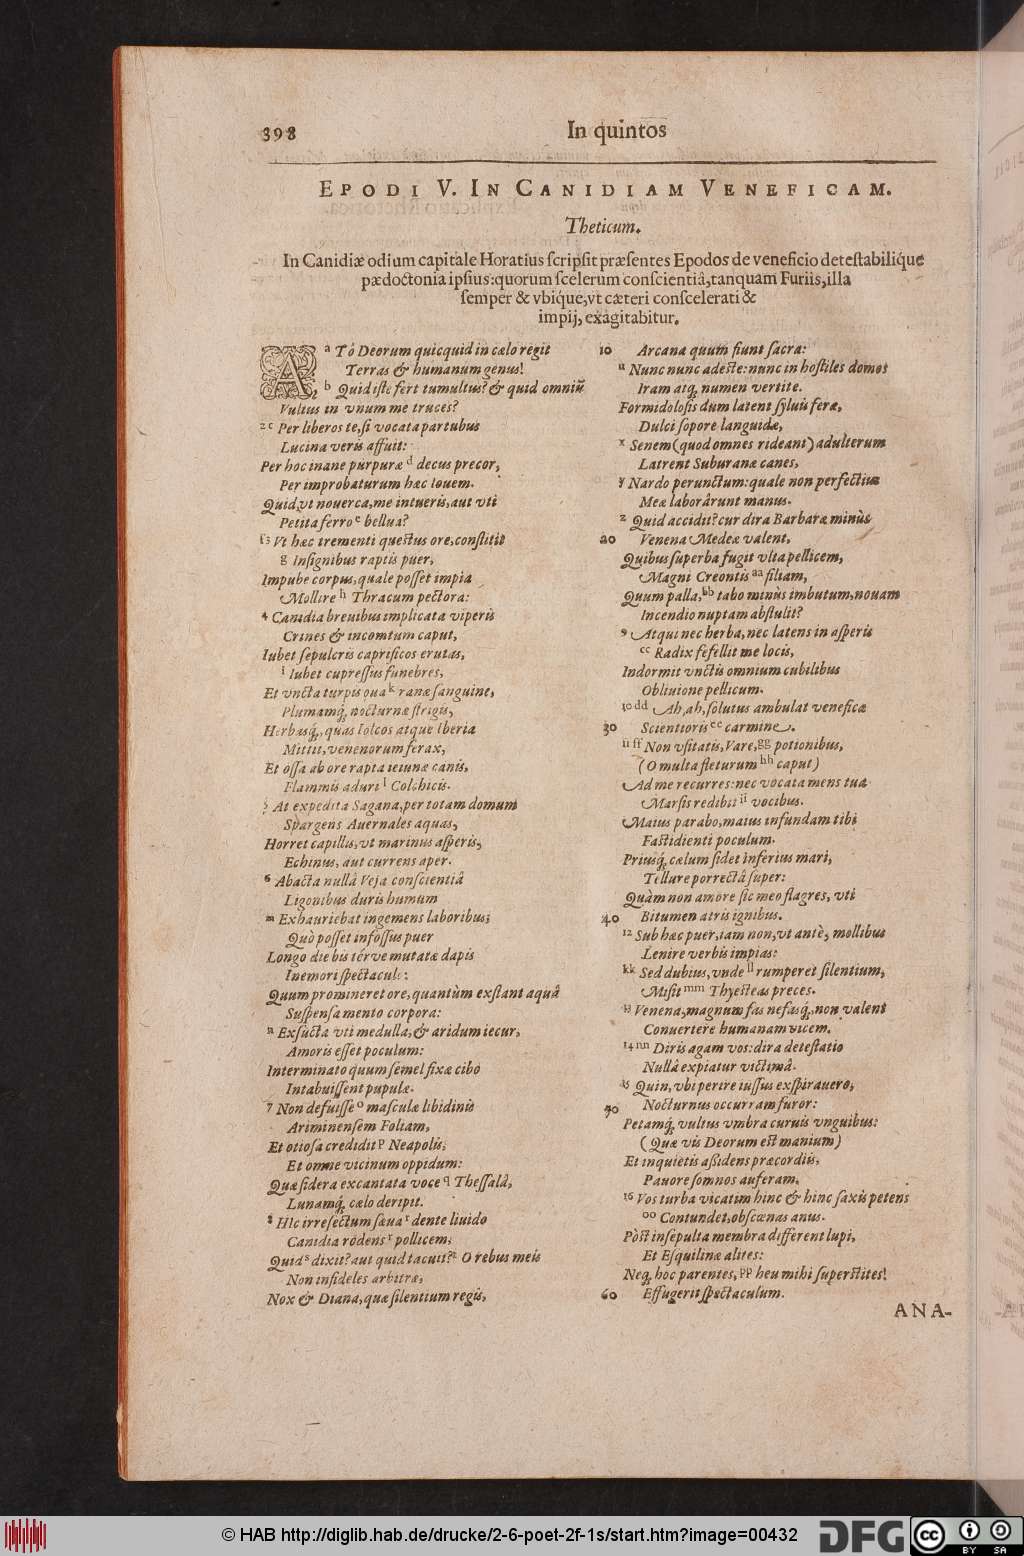 398
In quintos
EPODI V. IN CANIDIAM VENEFICAM.
Theticum.
In Canidiæ odium capitale Horatius scripsit præsentes Epodos de veneficio detestabilíque
pædoctonia ipsius: quorum scelerum conscientiâ, tanquam Furiis, illa
semper & vbíque, vt cæteri conscelerati &
impij, exagitabitur.
a Tó Deorum quicquid in cælo regit
Terras & humanum genus!
b Quid iste fert tumultus? & quid omniũ
Vultus in vnum me truces?
2 c Per liberos te, si vocata partubus
Lucina veris affuit:
Per hoc inane purpuræ d decus precor,
Per improbaturum hæc Iouem.
Quid vt nouerca, me intueris, aut vti
Petita ferro e bellua?
f 3 Vt hæc trementi questus ore, constitit
g Insignibus raptis puer,
Impube corpus, quale posset impia
Mollire h Thracum pectora:
4 Canidia breuibus implicata viperis
Crines & incomtum caput,
Iubet sepulcris caprificos erutas,
i Iubet cupressus funebres,
Et vncta turpis oua k ranæ sanguine,
Plumamq́; nocturnæ strigis,
Herbasq́;, quas Iolcos atque Iberia
Mittit, venenorum ferax,
Et ossa ab ore rapta ieiunæ canis,
Flammis aduri l Colchicis.
5 At expedita Sagana, per totam domum
Spargens Auernales aquas,
Horret capillis, vt marinus asperis,
Echinus, aut currens aper.
6 Abacta nullâ Veja conscientiâ
Ligonibus duris humum
m Exhauriebat ingemens laboribus;
Quò posset infossus puer
Longo die bis térve mutatæ dapis
Inemori spectaculo:
Quum promineret ore, quantùm exstant aquâ
Suspensa mento corpora:
n Exsucta vti medulla, & aridum iecur,
Amoris esset poculum:
Interminato quum semel fixæ cibo
Intabuissent pupulæ.
7 Non defuisse o masculæ libidinis
Ariminensem Foliam,
Et otiosa credidit p Neapolis,
Et omne vicinum oppidum:
Quæ sidera excantata voce q Thessalâ,
Lunamq́; cælo deripit.
8 Hîc irresectum sæua r dente liuido
Canidia rodens r pollicem,
Quid s dixit? aut quid tacuit? t O rebus meis
Non infideles arbitræ,
Nox & Diana, quæ silentium regis,
10 Arcana quum fiunt sacra:
u Nunc nunc adeste: nunc in hostiles domos
Iram atq; numen vertite.
Formidolosis dum latent syluis feræ,
Dulci sopore languidæ,
x Senem (quod omnes rideant) adulterum
Latrent Suburanæ canes,
y Nardo perunctum: quale non perfectius
Meæ laborârunt manus.
z Quid accidit? cur dira Barbaræ minùs
20 Venena Medeæ valent,
Quibus superba fugit vlta pellicem,
Magni Creontis aa filiam,
Quum palla, bb tabo minùs imbutum, nouam
Incendio nuptam abstulit?
9 Atqui nec herba, nec latens in asperis
cc Radix fefellit me locis,
Indormit vnctis omnium cubilibus
Obliuione pellicum.
10 dd Ah, ah, solutus ambulat veneficæ
30 Scientioris ee carmine.
11 ff Non vsitatis, Vare, gg potionibus,
(O multa fleturum hh caput)
Ad me recurres: nec vocata mens tua
Marsis redibit ii vocibus.
Maius parabo, maius infundam tibi
Fastidienti poculum.
Priusq́; cælum sidet inferius mari,
Tellure porrectâ super:
Quàm non amore sic meo flagres, vti
40 Bitumen atris ignibus.
12 Sub hæc puer, iam non, vt antè, mollibus
Lenire verbis impias:
kk Sed dubius, vnde ll rumperet silentium,
Misit mm Thyesteas preces.
13 Venena, magnum fas nefasq́;, non valent
Conuertere humanam vicem.
14 nn Diris agam vos: dira detestatio
Nullâ expiatur victimâ.
15 Quin, vbi perire iussus exspirauero,
50 Nocturnus occurram furor:
Petamq́; vultus vmbra curuis vnguibus:
(Quæ vis Deorum est manium)
Et inquietis assidens præcordiis,
Pauore somnos auferam.
16 Vos turba vicatim hinc & hinc saxis petens
oo Contundet, obscœnas anus.
Pòst insepulta membra different lupi,
Et Esquilinæ alites:
Neq; hoc parentes, pp heu mihi superstites!
60 Effugerit spectaculum.
ANA-
© HAB http://diglib.hab.de/drucke/2-6-poet-2f-1s/start.htm?image=00432
DFG
cc BY SA